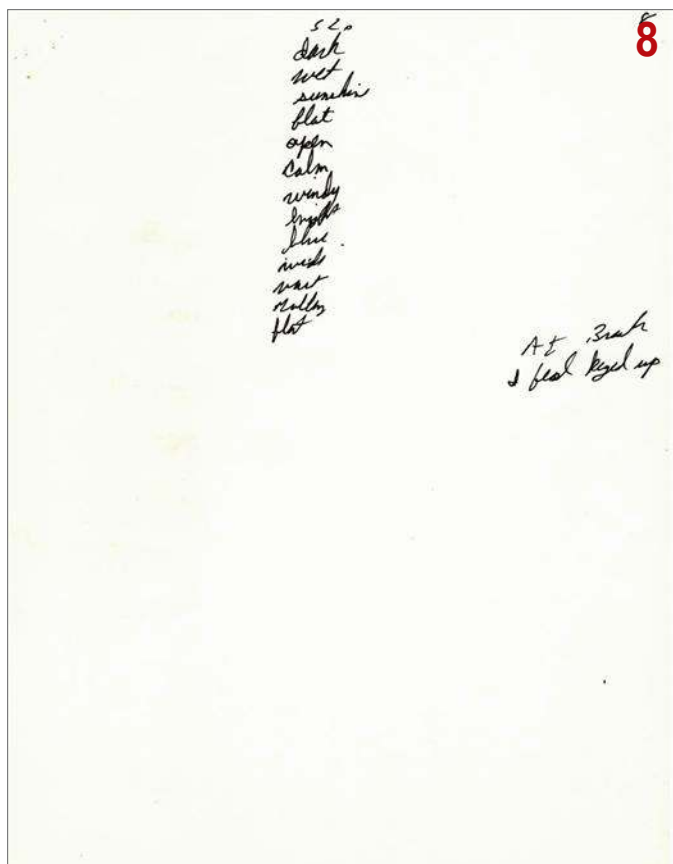 8
8
dark
wet
sunshin
flat
open
calm
windy
bright
blue
wide
vast
flat
At Break
I feel keyed up